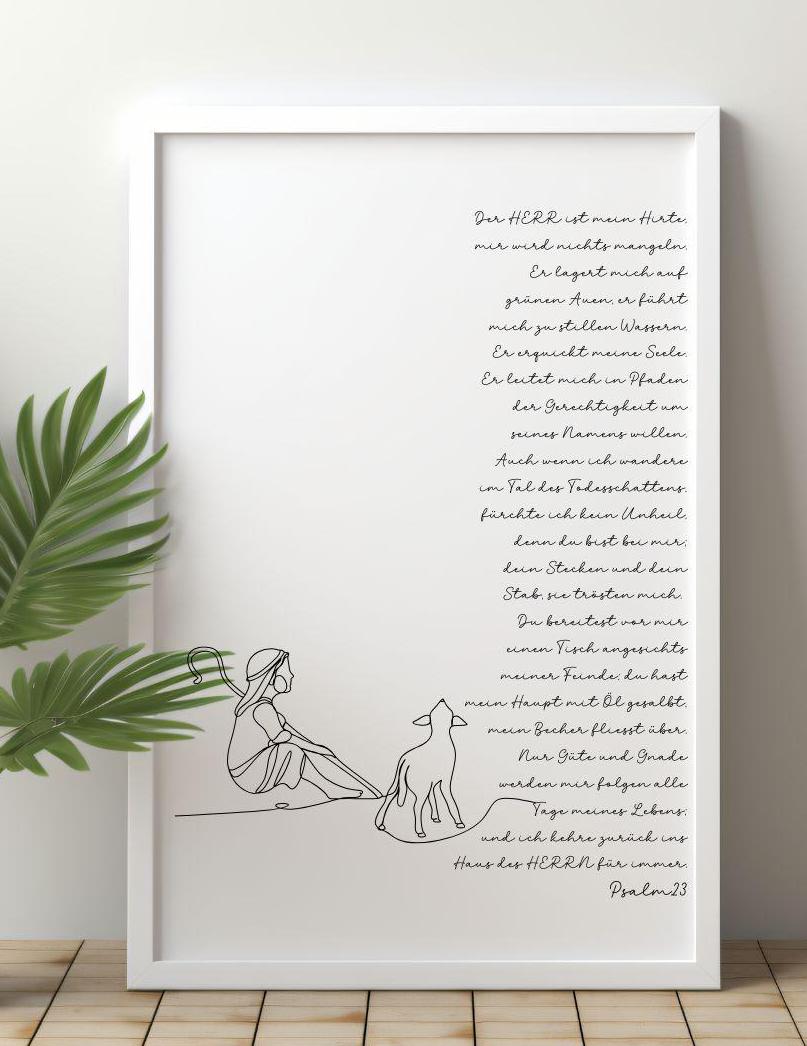 Der HERR ist mein Hirte,
mir wird nichts mangeln.
Er lagert mich auf
grünen Auen, er führt
mich zu stillen Wassern.
Er erquickt meine Seele.
Er leitet mich in Pfaden
der Gerechtigkeit um
seines Namens willen.
Auch wenn ich wandere
im Tal des Todesschattens,
fürchte ich kein Unheil,
denn du bist bei mir;
dein Stecken und dein
Stab, sie trösten mich.
Du bereitest vor mir
einen Tisch angesichts
meiner Feinde; du hast
mein Haupt mit Öl gesalbt,
mein Becher fliesst über.
Nur Güte und Gnade
werden mir folgen alle
Tage meines Lebens;
und ich kehre zurück ins
Haus des HERRN für immer.
Psalm23